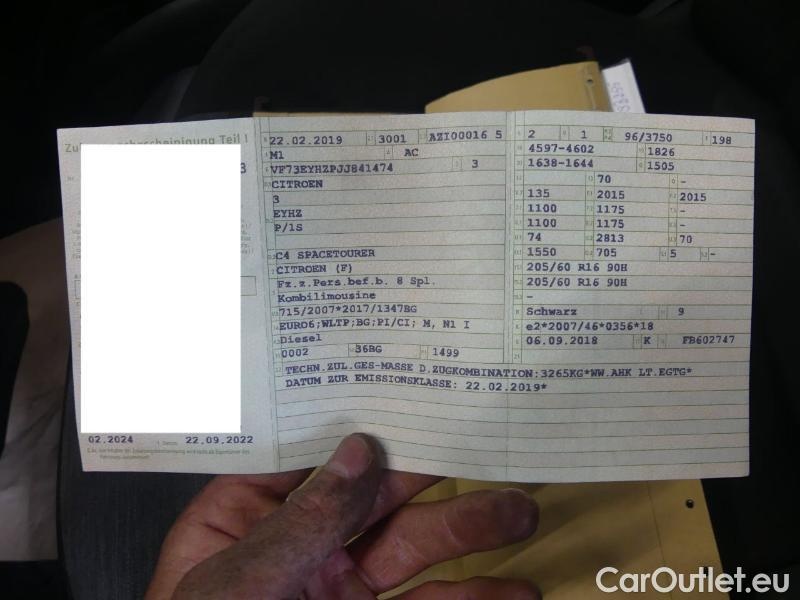 Teil I
3
22.02.2019 3001 AZI00016 5
M1 AC
VF73EYHZPJJ841474 3
CITROEN
3
EYHZ
P/1S
C4 SPACETOURER
CITROEN (F)
Fz.z.Pers.bef.b. 8 Spl.
Kombilimousine
715/2007*2017/1347BG
EURO6;WLTP;BG;PI/CI; M, N1 I
Diesel
0002 36BG 1499
2 1 96/3750 198
4597-4602 1826
1638-1644 1505
70 -
135 2015 2015
1100 1175 -
1100 1175 -
74 2813 70
1550 705 5 -
205/60 R16 90H
205/60 R16 90H
-
Schwarz 9
e2*2007/46*0356*18
06.09.2018 K FB602747
TECHN.ZUL.GES-MASSE D.ZUGKOMBINATION:3265KG*WW.AHK LT.EGTG*
DATUM ZUR EMISSIONSKLASSE: 22.02.2019*
02.2024 22.09.2022
CarOutlet.eu